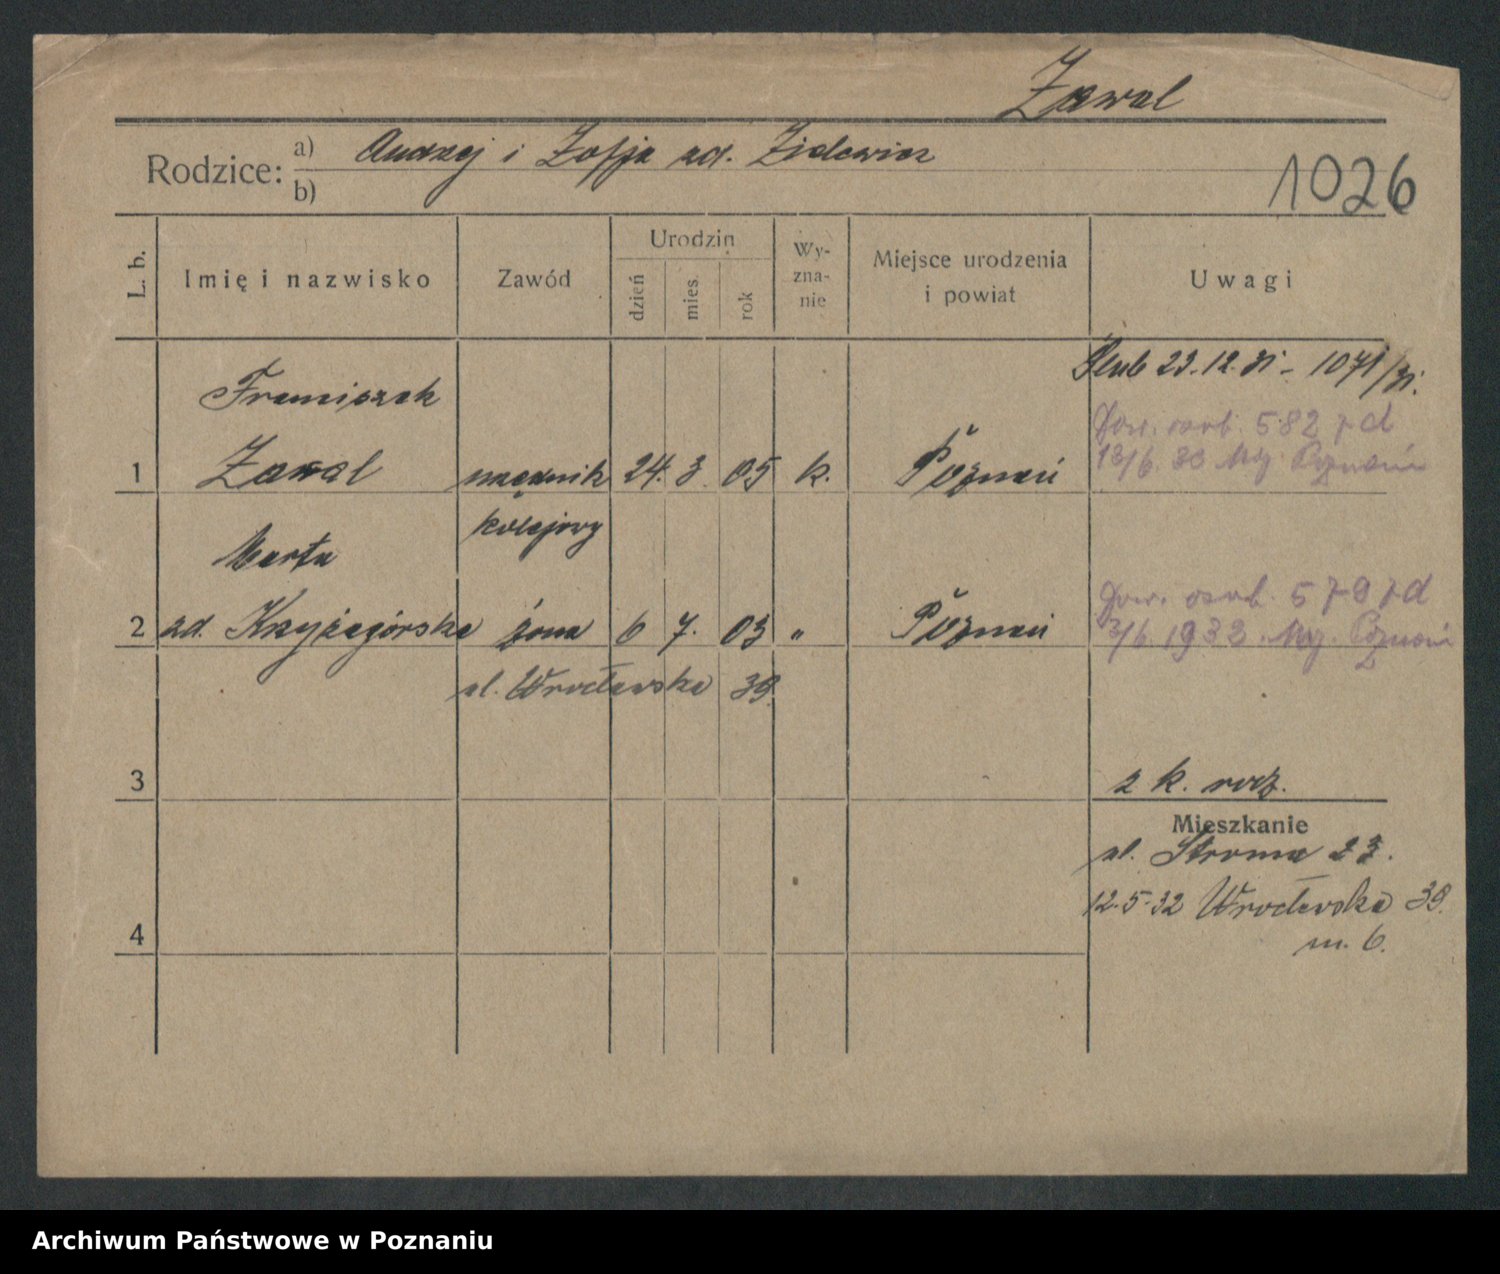 Zawal
Rodzice: a) Andrzej i Zofja zd. Zidewicz
b)
1026
L. b. Imię i nazwisko Zawód Urodzin dzień mies. rok Wy-zna-nie Miejsce urodzenia i powiat Uwagi
Ślub 23.12.31 - 1071/31.
Franciszek
Dow. osob. 582 7 d
1 Zawal urzędnik 24. 3. 05 k. Poznań 13/6. 33 Mg. Poznania
kolejowy
Marta
Dow. osob. 579 7 d
2 zd. Krzyżagórska żona 6 7. 03 " Poznań 13/6. 1933. Mg. Poznań
ul. Wrocławska 39
3 2 k. rodz.
Mieszkanie
ul. Stroma 23.
12.5-32 Wrocławska 39.
4 m. 6.
Archiwum Państwowe w Poznaniu